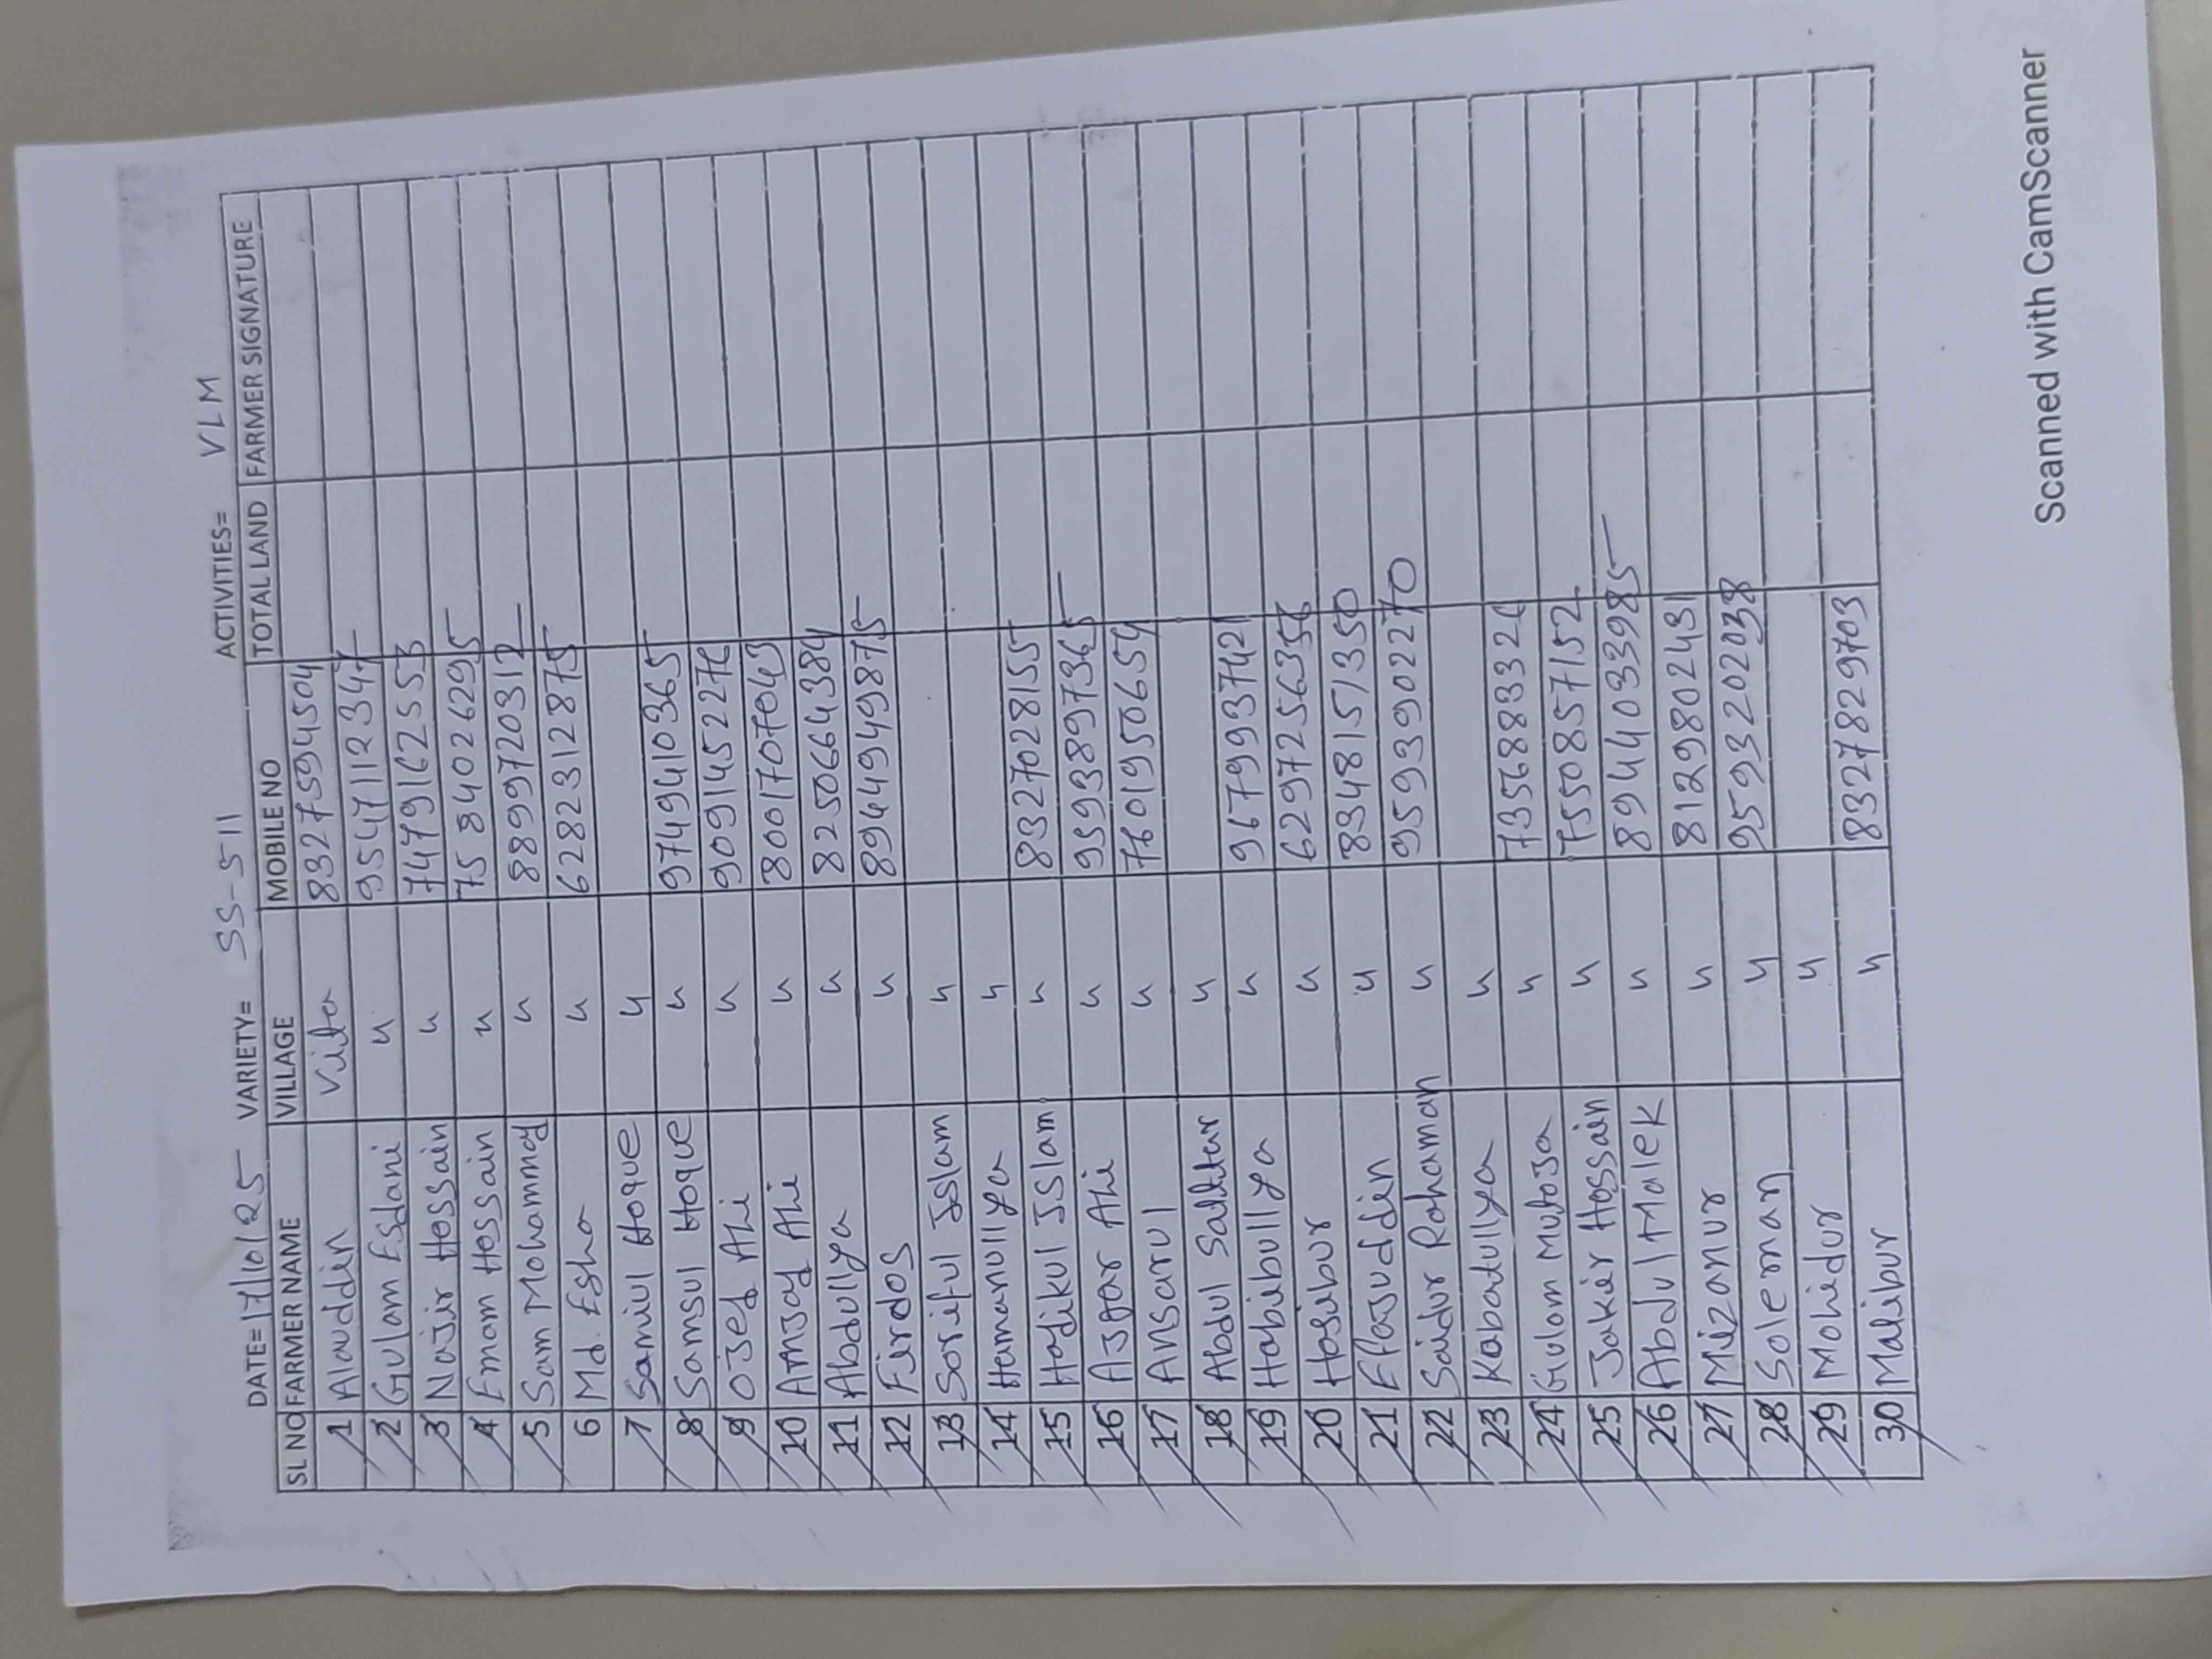 DATE= 17/10/25 VARIETY= SS-511 ACTIVITIES= VLM
SL NO FARMER NAME VILLAGE MOBILE NO TOTAL LAND FARMER SIGNATURE
1 Alauddin Vita 8327594504
2 Gulam Esdani " 9547112347
3 Najir Hossain " 7479162553
4 Emam Hossain " 7584026295
5 Sam Mohammad " 8899720312
6 Md. Esha " 6282312875
7 Samiul Hoque "
8 Samsul Hoque " 9749410365
9 Ojed Ali " 9091452276
10 Amjad Ali " 8001707043
11 Abdullya " 8250664384
12 Firdos " 8944949875
13 Soriful Islam "
14 Hamanullya "
15 Hadikul Islam " 8327028155
16 Ajgar Ali " 9593897365
17 Ansarul " 7601950654
18 Abdul Sattar "
19 Habibullya " 9679937421
20 Hasibur " 6297256356
21 Efajuddin " 8348151350
22 Saidur Rohaman " 9593902270
23 Kabatullya "
24 Gulom Mutoja " 7356883326
25 Jakir Hossain " 7550857152
26 Abdul Malek " 8944033985
27 Mizanur " 8129802431
28 Soleman " 9593202038
29 Mohidur "
30 Malibur " 8327829703
Scanned with CamScanner